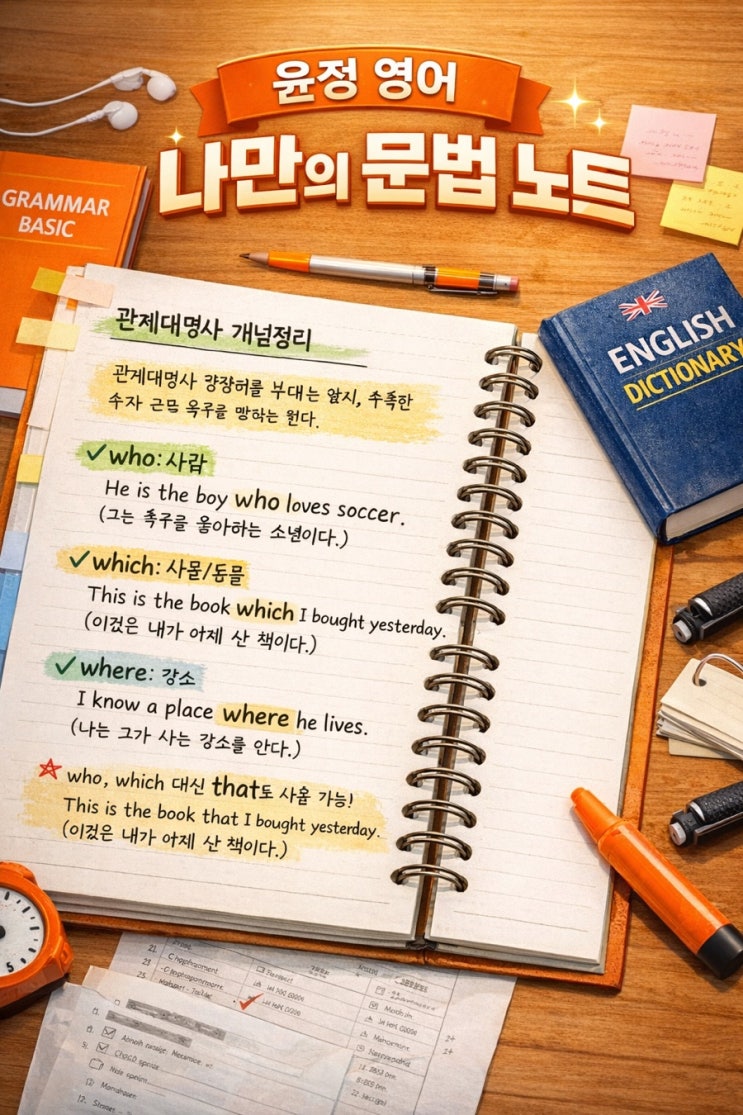 윤정 영어
나만의 문법 노트
GRAMMAR
BASIC
ENGLISH
DICTIONARY
관제대명사 개념정리
관게대명사 걍쟝허를 부대는 앎시, 수족한
속자 근믐 욱구를 망하는 원다.
✓who: 사람
He is the boy who loves soccer.
(그는 축구를 움아하는 소년이다.)
✓which: 사물/동믈
This is the book which I bought yesterday.
(이것은 내가 아제 산 책이다.)
✓where: 강소
I know a place where he lives.
(나는 그가 사는 강소를 안다.)
☆ who, which 대신 that도 사욤 가능!
This is the book that I bought yesterday.
(이것은 내가 아제 산 책이다.)
5